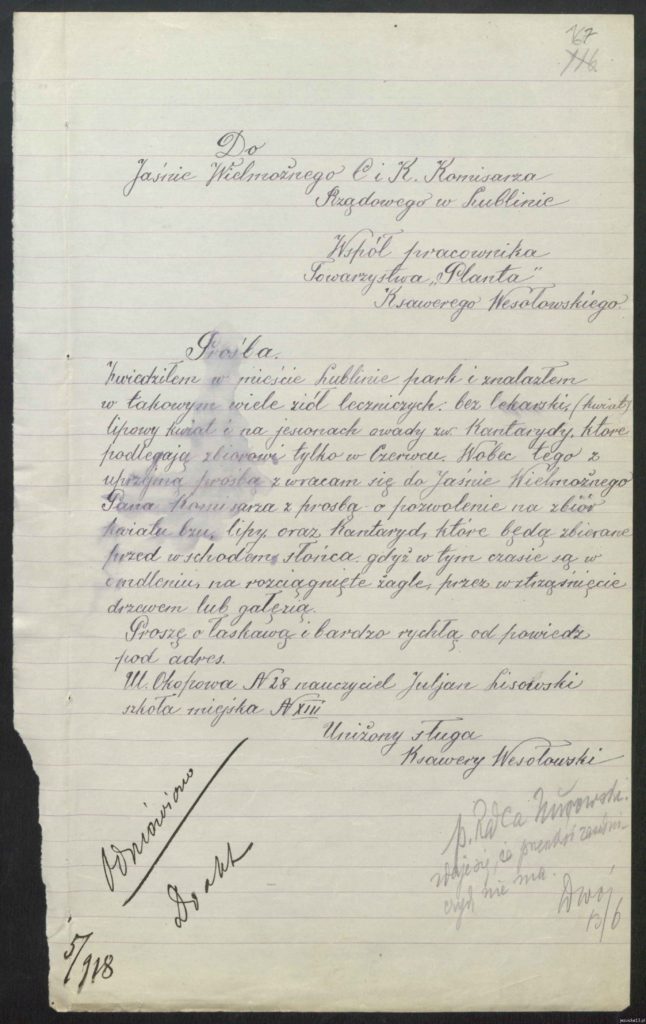 167
116
Do
Jaśnie Wielmożnego C i K. Komisarza
Rządowego w Lublinie
Współ pracownika
Towarzystwa „Planta"
Ksawerego Wesołowskiego.
Prośba.
Zwiedziłem w mieście Lublinie park i znalazłem
w takowym wiele ziół leczniczych: bez lekarski, (kwiat)
lipowy kwiat i na jesionach owady zw. Kantarydy, które
podlegają zbiorowi tylko w Czerwcu. Wobec tego z
uprzejmą prośbą zwracam się do Jaśnie Wielmożnego
Pana Komisarza z prośbą o pozwolenie na zbiór
kwiatu bzu, lipy, oraz Kantaryd, które będą zbierane
przed wschodem słońca, gdyż w tym czasie są w
omdleniu, na rozciągnięte żagle, przez wztrząśnięcie
drzewem lub gałęzią.
Proszę o łaskawą i bardzo rychłą od powiedz
pod adres.
Ul. Okopowa N 28 nauczyciel Juljan Lisowski
szkoła miejska N XIII
Uniżony sługa
Ksawery Wesołowski
Odmówiono
Do akt
p. Radca
zdaje się, że
nie ma.
13/6
5/918